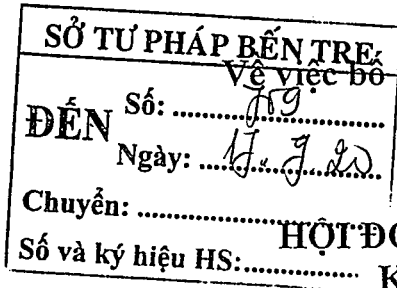 SỞ TƯ PHÁP BẾN TRE
Về việc bổ
ĐẾN
Số: ....................
Ngày: ....................
Chuyển: ....................
HỘI ĐỒ
Số và ký hiệu HS:....................
K